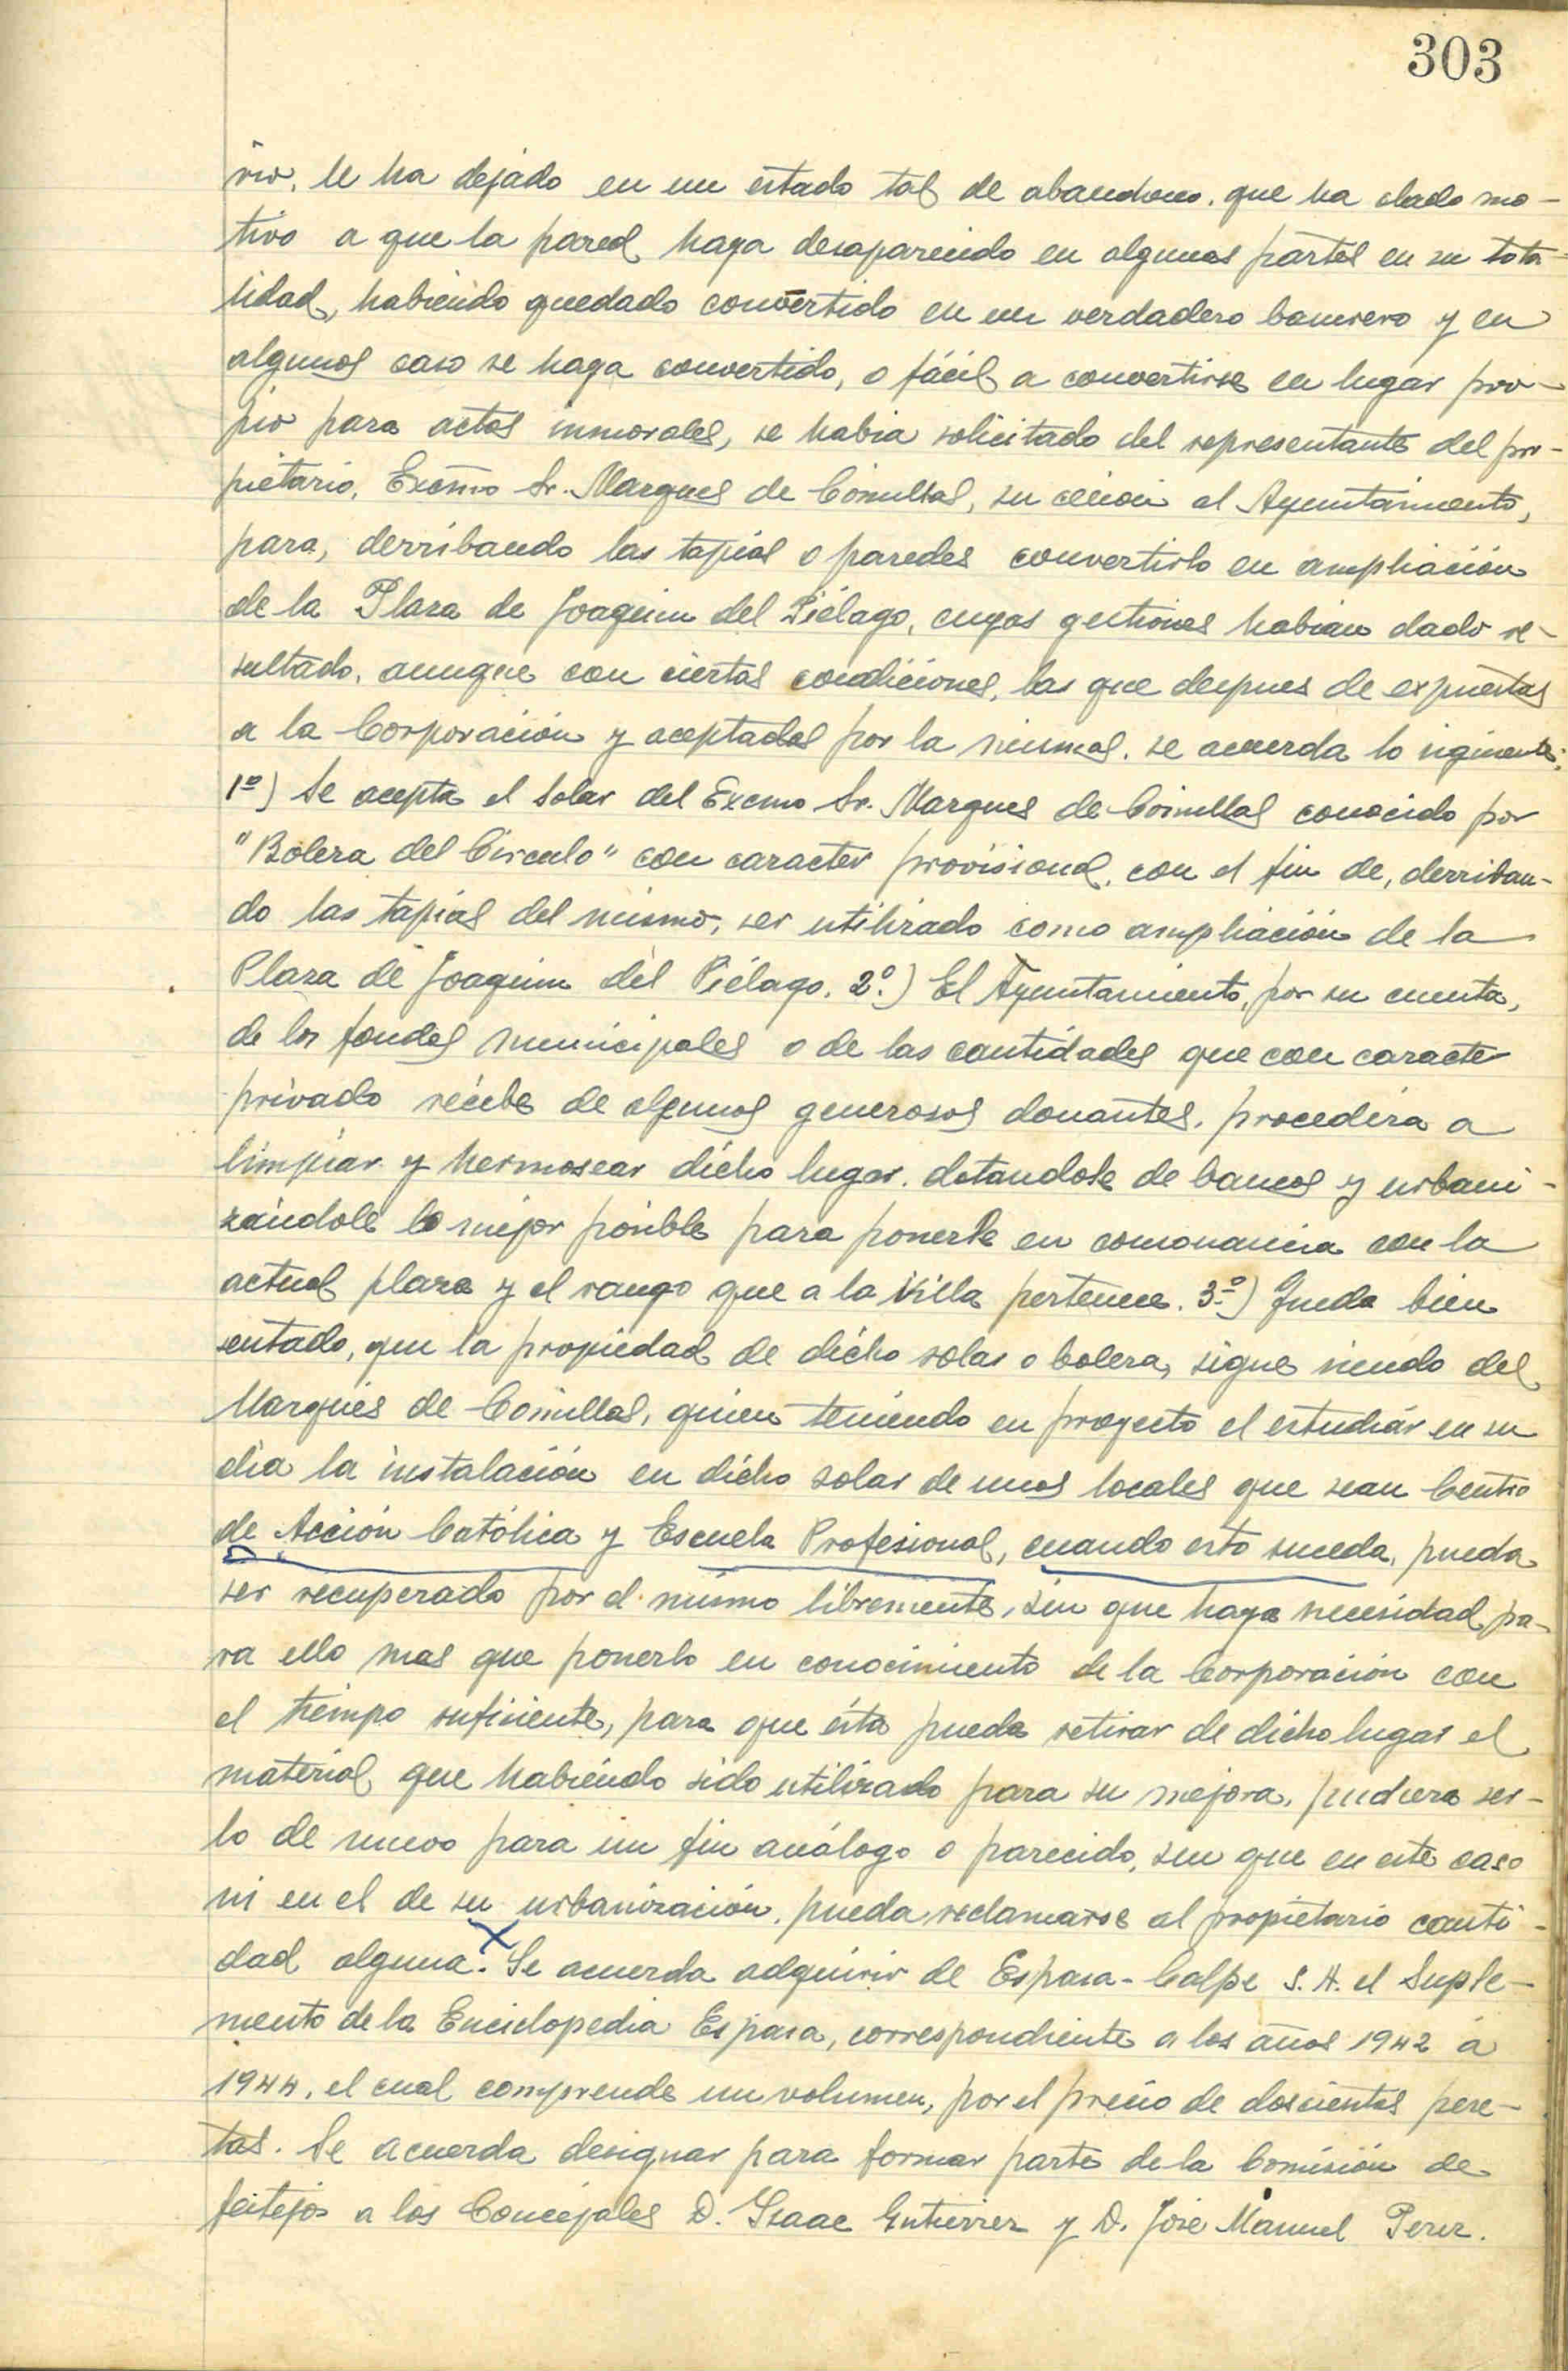 303
rio, le ha dejado en un estado tal de abandono, que ha dado mo-
tivo a que la pared haya desaparecido en algunas partes en su tota-
lidad, habiendo quedado convertido en un verdadero basurero y en
algunos caso se haya convertido, o fácil a convertirse en lugar pro-
pio para actos inmorales, se habia solicitado del representante del pro-
pietario, Excmo Sr. Marques de Comillas, su cesion al Ayuntamiento,
para, derribando las tapias o paredes convertirlo en ampliación
de la Plaza de Joaquin del Piélago, cuyas gestiones habian dado re-
sultado, aunque con ciertas condiciones, las que despues de expuestas
a la Corporación y aceptadas por la misma, se acuerda lo siguiente:
1º) Se acepta el Solar del Excmo Sr. Marques de Comillas conocido por
"Bolera del Circulo" con caracter provisional, con el fin de, derriban-
do las tapias del mismo, ser utilizado como ampliación de la
Plaza de Joaquin del Piélago. 2º.) El Ayuntamiento, por su cuenta,
de los fondos municipales o de las cantidades que con caracter
privado recibe de algunos generosos donantes, procedera a
limpiar y hermosear dicho lugar, dotandole de bancos y urbani-
zándole lo mejor posible para ponerle en consonancia con la
actual plaza y el rango que a la Villa pertenece. 3º) Queda bien
sentado, que la propiedad de dicho solar o bolera, sigue siendo del
Marqués de Comillas, quien teniendo en proyecto el estudiar en su
dia la instalación en dicho solar de unos locales que sean Centro
de Acción Católica y Escuela Profesional, cuando esto suceda, pueda
ser recuperado por el mismo libremente, sin que haya necesidad pa-
ra ello mas que ponerlo en conocimiento de la Corporación con
el tiempo suficiente, para que ésta pueda retirar de dicho lugar el
material que habiendo sido utilizado para su mejora, pudiera ser-
lo de nuevo para un fin análogo o parecido, sin que en este caso
ni en el de su urbanización, pueda reclamarse al propietario canti-
dad alguna. Se acuerda adquirir de Espasa-Calpe S.A. el Suple-
mento de la Enciclopedia Espasa, correspondiente a los años 1942 á
1944, el cual comprende un volumen, por el precio de doscientas pese-
tas. Se acuerda designar para formar parte de la Comisión de
festejos a los Concejales D. Isaac Gutierrez y D. Jose Manuel Perez.